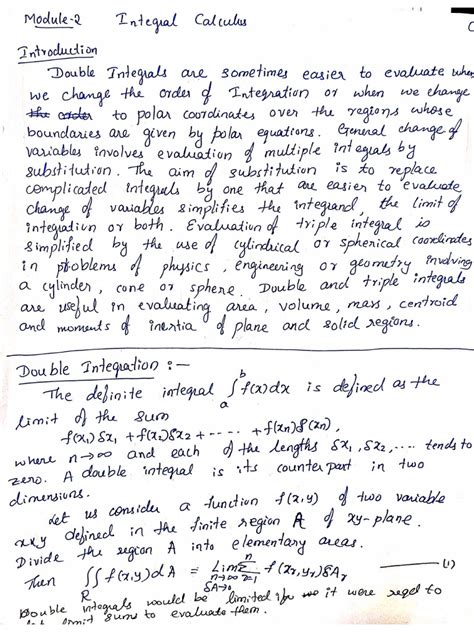 Module-2 Integral Calculus
Introduction
Double Integrals are sometimes easier to evaluate when
we change the order of Integration or when we change
the order to polar coordinates over the regions whose
boundaries are given by polar equations. General change of
variables involves evaluation of multiple integrals by
substitution. The aim of substitution is to replace
complicated integrals by one that are easier to evaluate
change of variables simplifies the integrand, the limit of
integration or both. Evaluation of triple integral is
simplified by the use of cylindrical or spherical coordinates
in problems of physics, engineering or geometry involving
a cylinder, cone or sphere. Double and triple integrals
are useful in evaluating area, volume, mass, centroid
and moments of inertia of plane and solid regions.
Double Integration :—
The definite integral ∫ₐᵇ f(x)dx is defined as the
limit of the sum
f(x₁)δx₁ + f(x₂)δx₂ + ----- + f(xn)δ(xn),
where n→∞ and each of the lengths δx₁, δx₂, .... tends to
zero. A double integral is its counterpart in two
dimensions.
Let us consider a function f(x,y) of two variable
x,y defined in the finite region A of xy-plane.
Divide the region A into elementary areas.
Then ∫∫ f(x,y)dA = Lim Σ f(xr,yr)δAr — (1)
R n→∞ r=1 n
δA→0
Double integrals would be limited if it were to
limit sums to evaluate them.